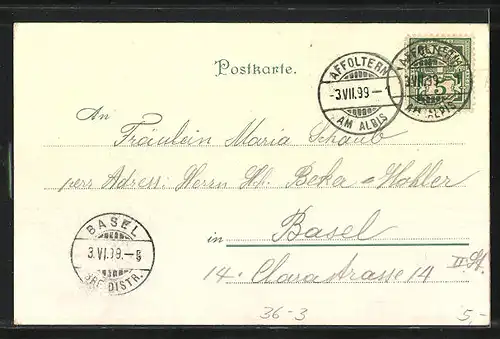 Postkarte.
AFFOLTERN
-3.VII.99.-1
AM ALBIS
AFFOLTERN
3.VII.99.-1
AM ALBIS
5
An
Fräulein Maria Schaub
per Adress: Herrn H. Beka-Wohler
in Basel
14. Clarastrasse 14 II. St.
BASEL
3.VI.99.-8
BRF. DISTR.
36-3
5,-